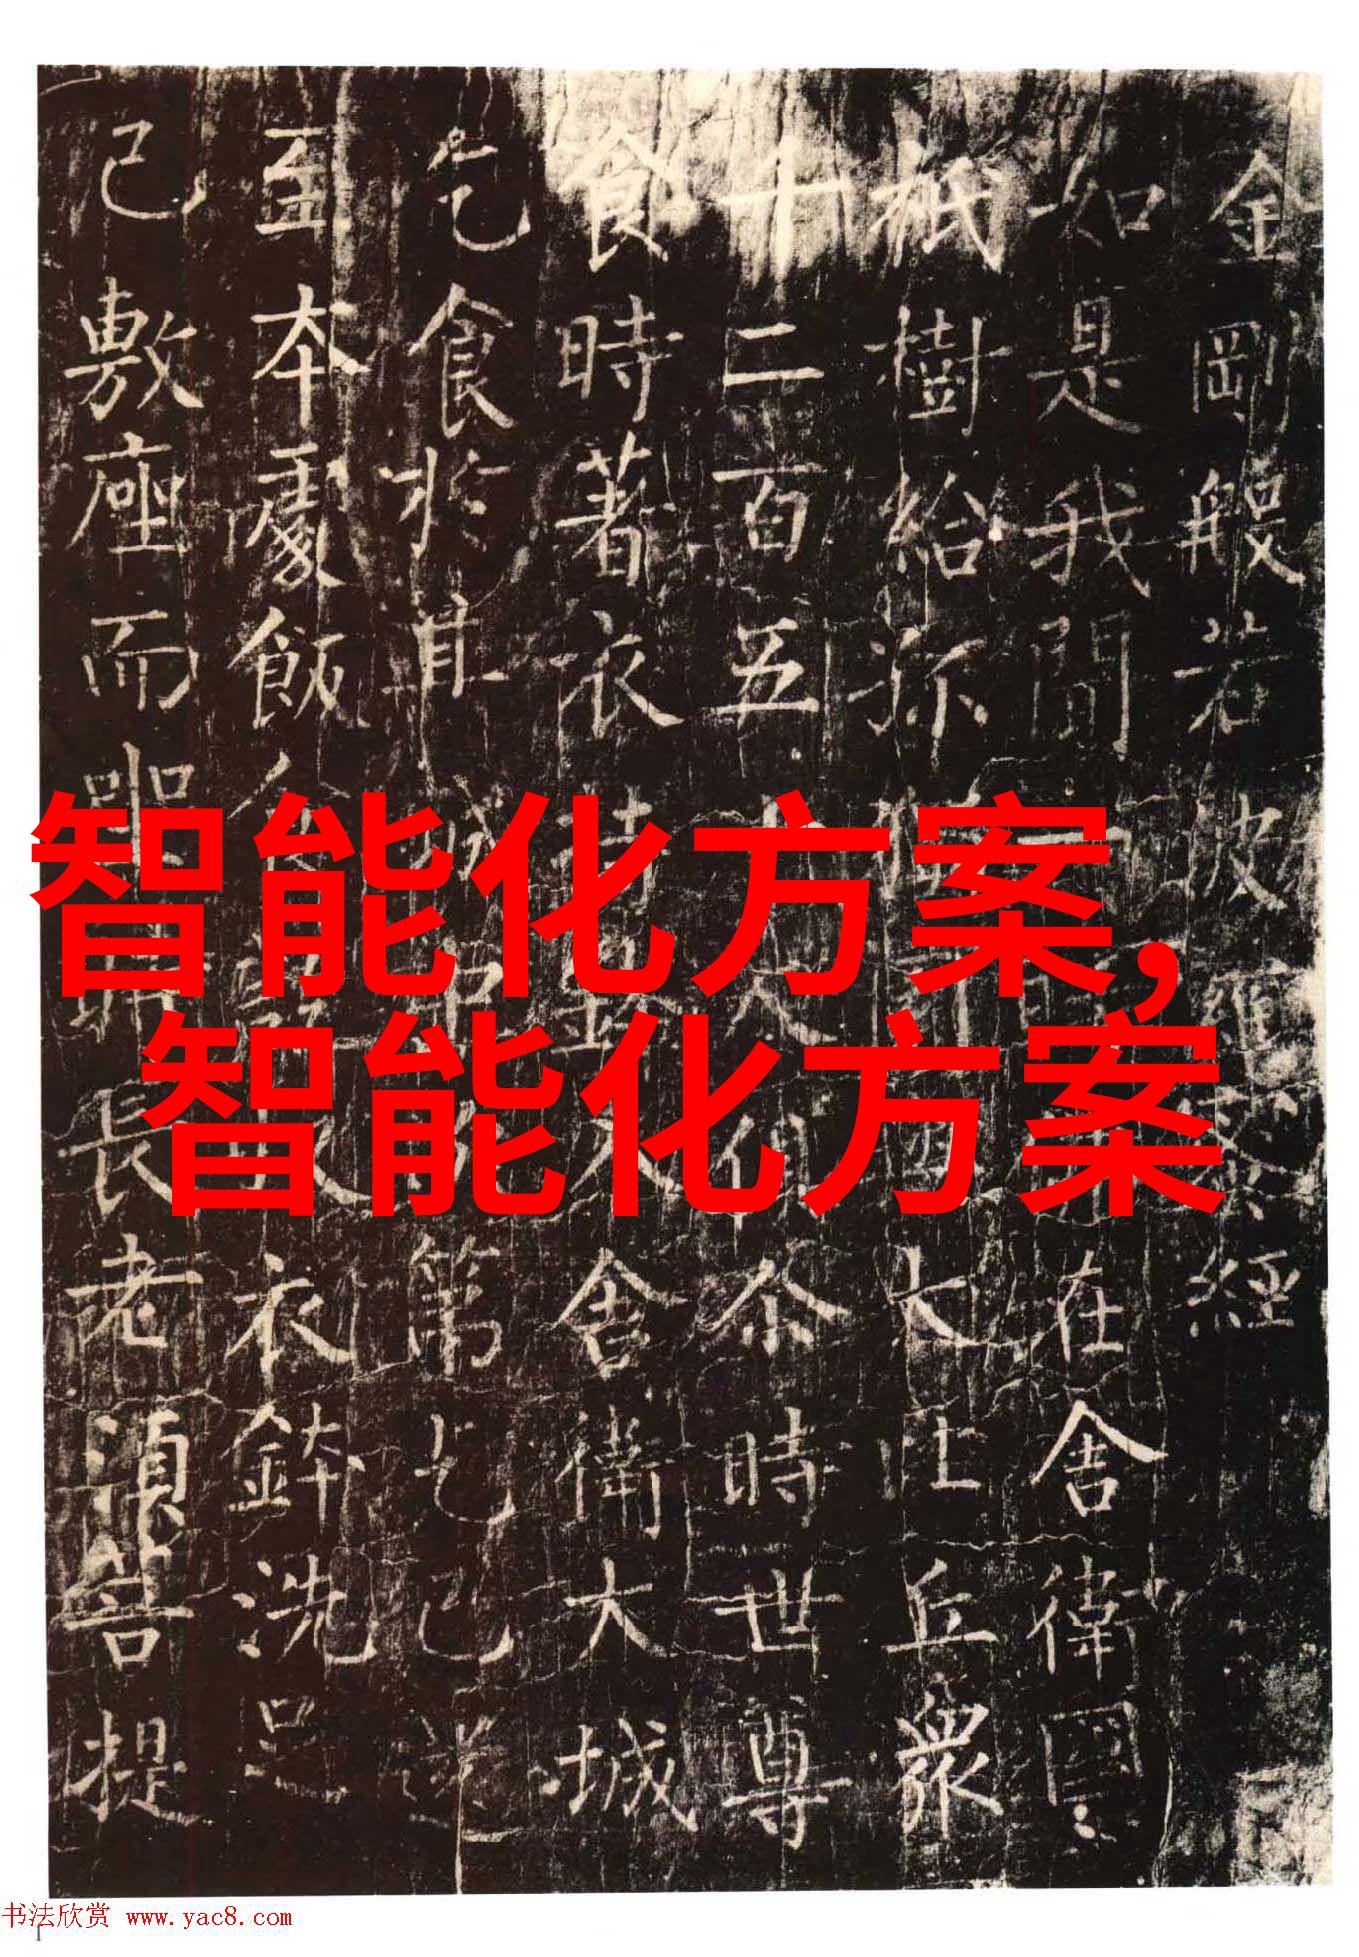 金剛般若波羅蜜經
如是我聞一在舍衛國
祇樹給孤大比丘眾
十二百五十人俱尒時世尊
食時著衣持鉢入舍衛大城
乞食於其城中第乞已還
至本處飯食衣鉢洗足
已敷座而坐時長老須菩提
智能化方案,
智能化方案
书法欣赏 www.yac8.com